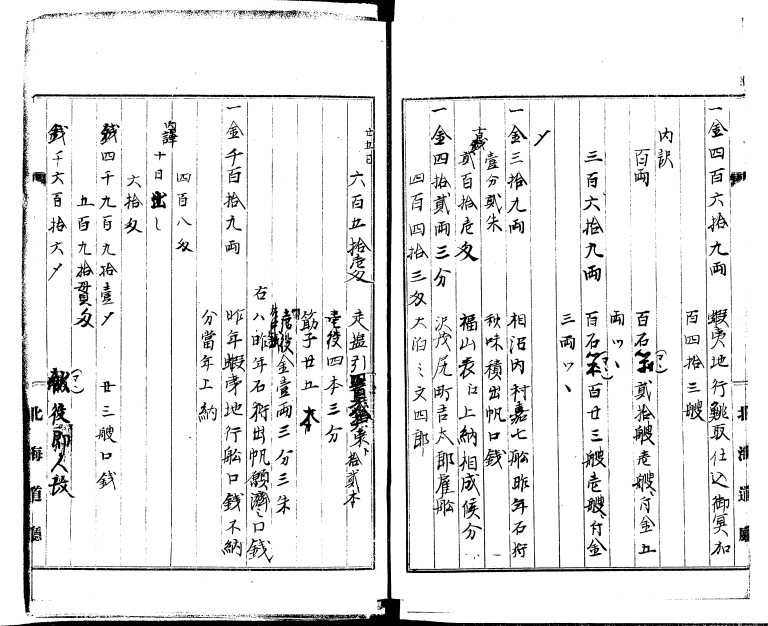 一金四百六拾九両　蝦夷地行鯡取仕込御冥加
百四拾三艘
内訳
百両　百石
弐拾艘壱艘ニ付金五
両ツヽ
三百六拾九両　百石
百廿三艘壱艘ニ付金
三両ツヽ
〆
一金三拾九両　相沼内村嘉七船昨年石狩
壱分弐朱　秋味積出帆口銭
弐百拾壱匁　福山表江上納相成候分
一金四拾弐両三分　沢茂尻町吉太郎雇船
四百四拾三匁　大泊ミ文四郎
北海道廳
廿五日
六百五拾壱匁　塩引
拾弐本
壱役四本三分
筋子廿五本
役金壱両三分三朱
右ハ昨年石狩出帆願済口銭
一金千百拾九両　昨年蝦夷地行船口銭不納
分當年上納
四百八匁
内譯
十日出し
六拾匁
銭四千九百九拾壱〆　廿三艘口銭
五百九拾貫匁
銭千六百拾六〆
役
人
北海道廳